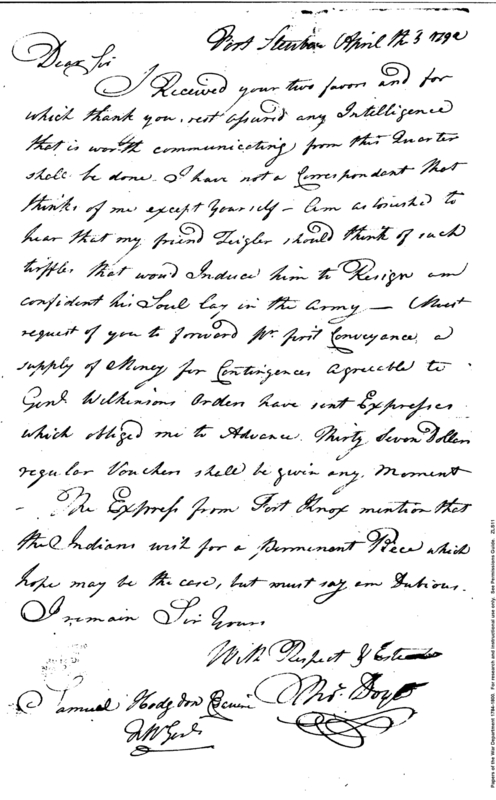 Fort Steuben April th 3 1792
Dear Sir
I Received your two favors and for
which thank you, rest assured any Intelligence
that is worth communicating from this Quarter
shall be done. I have not a Correspondant that
thinks of me except Yourself – Am astonished to
hear that my friend Zeigler should think of such
triffles that woud Induce him to Resign am
confident his Soul lay in the Army – Must
request of you to forward pr. first Conveyance a
supply of Money for Contingences Agreeable to
Genl. Wilkinsons Orders have sent Expresses
which obliged me to Advance Thirty Seven Dollers
regular Vouchers shall be givin any Moment
– The Express from Fort Knox mention that
the Indians wish for a permenant Pece which
hope may be the case, but must say am Dubious.
I remain Sir Yours
With Respect & Esteem
Thos. Doyle
Samuel Hodgdon Esquire
QMGenl
Papers of the War Department 1784-1800. For research and instructional use only. See Permissions Guide. ZLS11